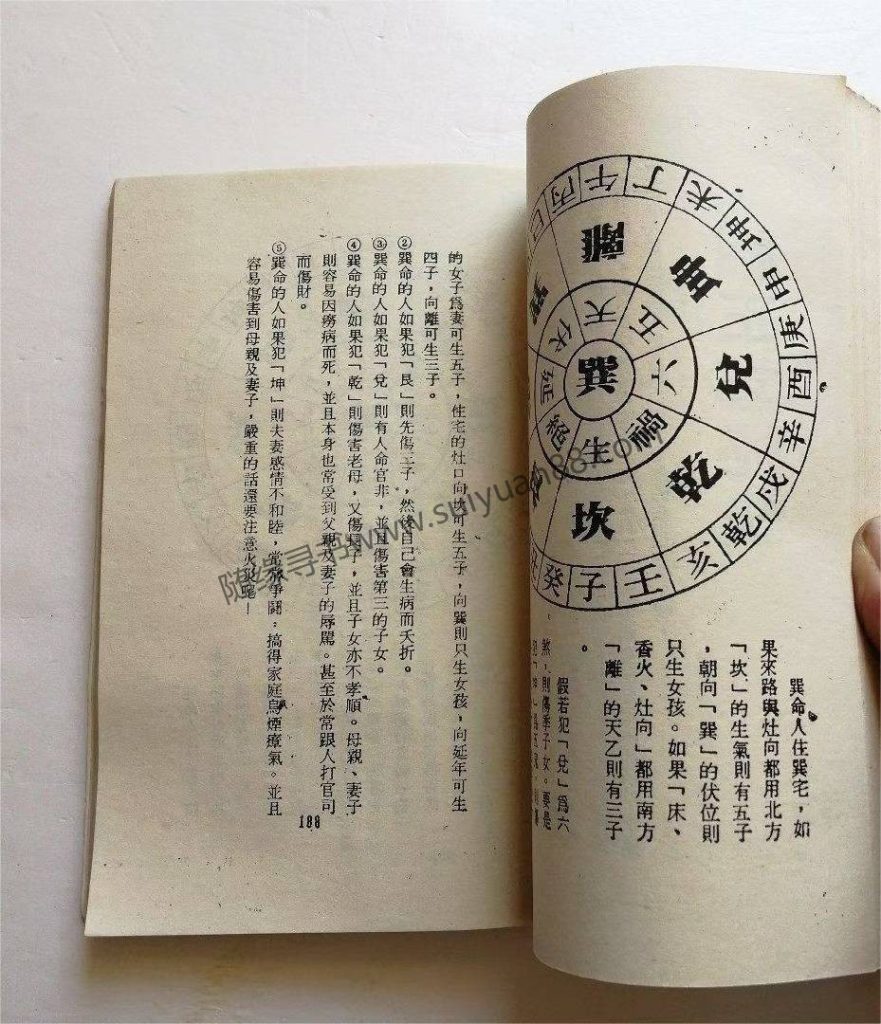 的女子為妻可生五子，住宅的灶口向坎可生五子，向巽則只生女孩，向延年可生
四子，向離可生三子。
②巽命的人如果犯「艮」則先傷三子，然後自己會生病而夭折。
③巽命的人如果犯「兌」則有人命官非，並且傷害第三的子女。
④巽命的人如果犯「乾」則傷害老母，又傷子，並且子女亦不孝順。母親、妻子
則容易因癆病而死，並且本身也常受到父親及妻子的辱罵。甚至於常跟人打官司
而傷財。
⑤巽命的人如果犯「坤」則夫妻感情不和睦，常常爭鬪，搞得家庭烏煙瘴氣。並且
容易傷害到母親及妻子，嚴重的話還要注意火災呢！
188
巽
天 五 六 禍 生 延 伏
離 坤 兌 乾 坎
丙 午 丁 未 坤 申 庚 酉 辛 戌 乾 亥 壬 子 癸
巽命人住巽宅，如
果來路與灶向都用北方
「坎」的生氣則有五子
，朝向「巽」的伏位則
只生女孩。如果「床、
香火、灶向」都用南方
「離」的天乙則有三子
。
假若犯「兌」為六
煞，則傷季子女。要是
随缘寻书www.suiyuan88.com